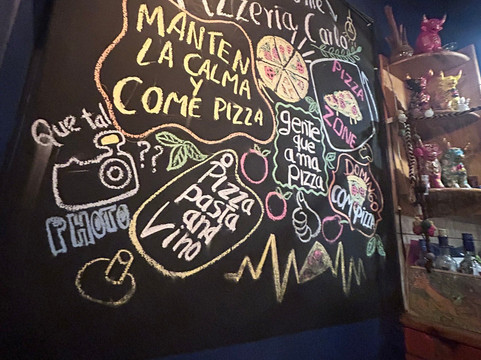 Pizzeria Carla
MANTEN
LA CALMA
Y
COME PIZZA
PIZZA
ZONE
gente
que
ama
pizza
Que tal
??
PHOTO
Pizza
pasta
and
Vino
DOMINGO
CON
PIZZA